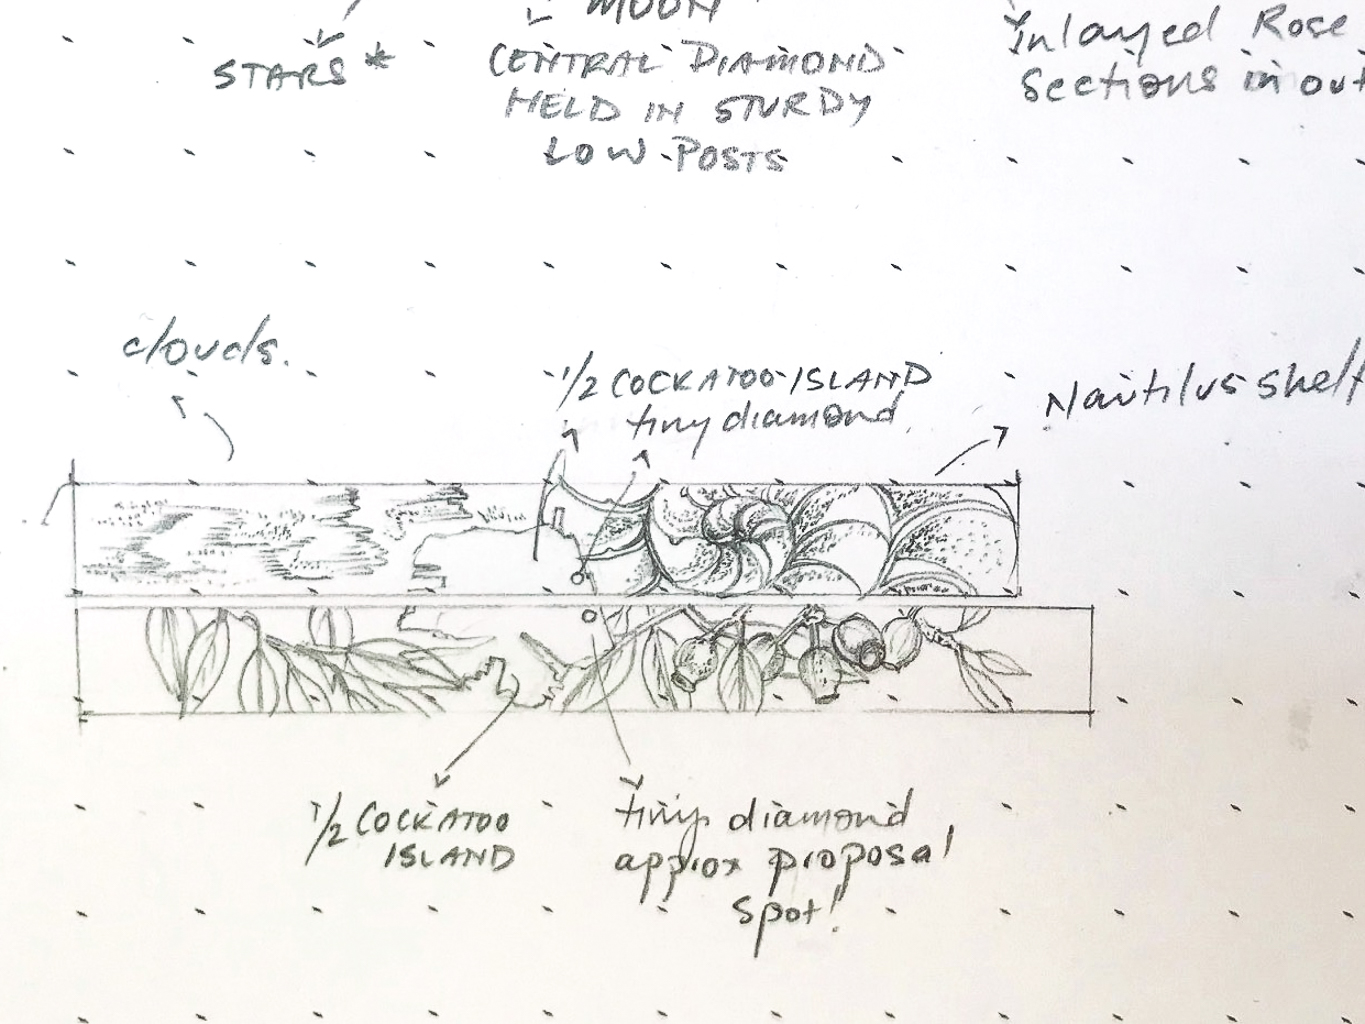 MOON
STARS *
CENTRAL DIAMOND
HELD IN STURDY
LOW POSTS
Inlayed Rose
Sections in out
clouds.
1/2 COCKATOO ISLAND
tiny diamond
Nautilus shell
1/2 COCKATOO
ISLAND
tiny diamond
approx proposal
spot!